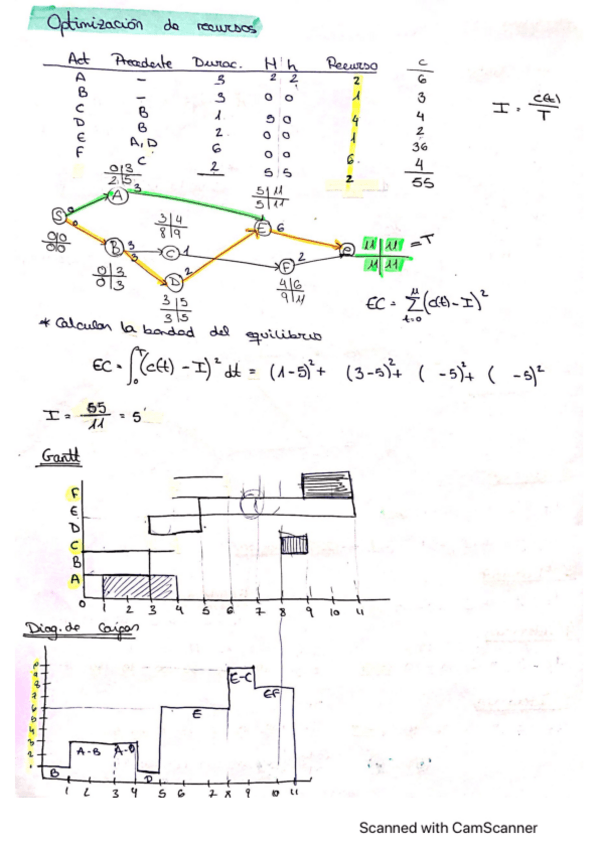 Optimización de recursos
Act Precedente Durac. H h Recurso C
A - 3 2 2 2 6
B - 3 0 0 1 3
C B 1 5 0 4 4
D B 2 0 0 1 2
E A, D 6 0 0 6 36
F C 2 5 5 2 4
55
I = c(t) / T
0 3
2 5
A 3
5 11
5 11
S
0 0
0 0
3 4
8 9
E 6
B 3
3
C 1
0 3
0 3
D 2
3 5
3 5
F 2
4 6
9 11
e
11 11
11 11
= T
EC = Σ (c(t) - I)²
t=0
* Calcular la bondad del equilibrio
EC = ∫₀ᵀ (c(t) - I)² dt = (1-5)² + (3-5)² + ( -5)² + ( -5)²
I = 55 / 11 = 5
Gantt
F
E
D
C
B
A
0 1 2 3 4 5 6 7 8 9 10 11
Diag. de
E-C
EF
E
A-B A-D
B
D
1 2 3 4 5 6 7 8 9 10 11
Scanned with CamScanner